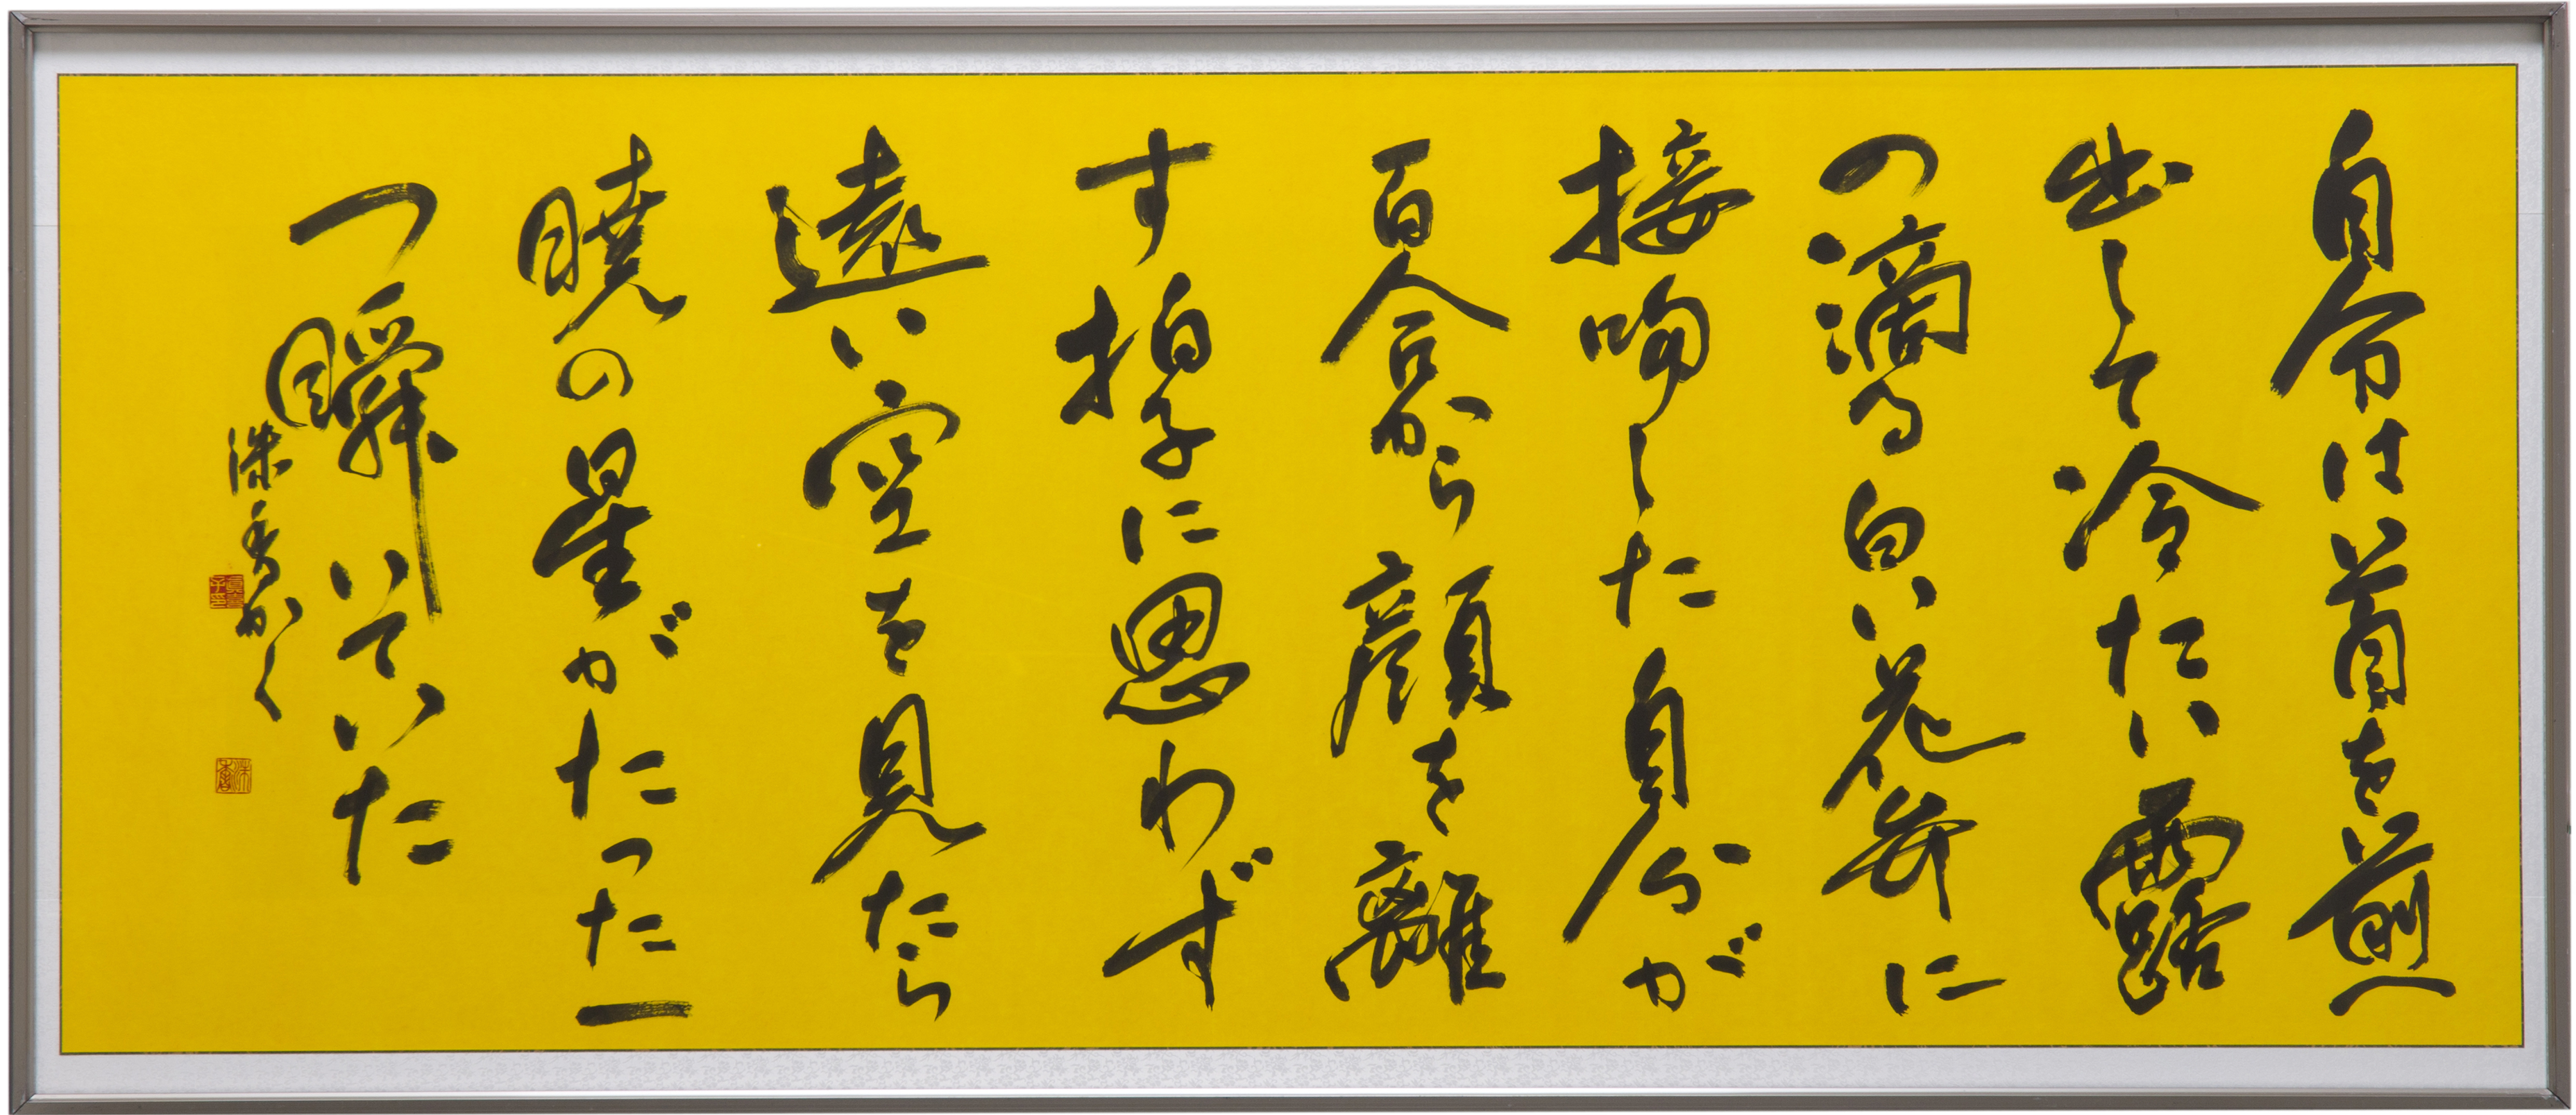 自分は首を前へ
出して冷たい露
の滴る白い花弁に
接吻した自分が
百合から顔を離
す拍子に思わず
遠い空を見たら
暁の星がたった一
つ瞬いていた
洙香かく